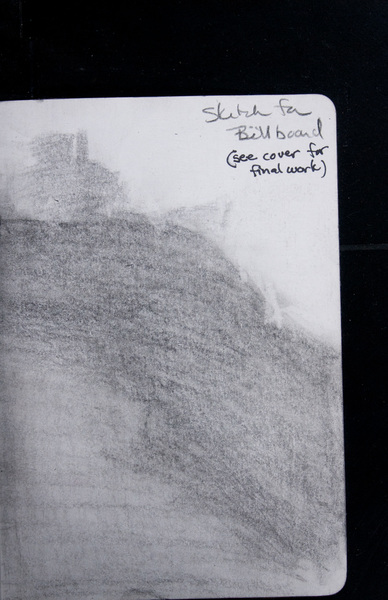 Sketch for
Billboard
(see cover for
final work)